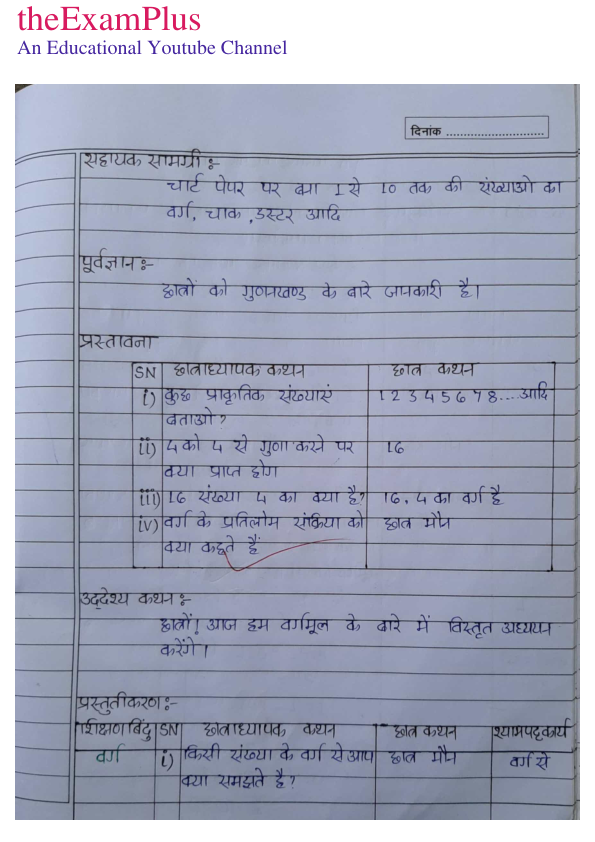 theExamPlus
An Educational Youtube Channel
दिनांक ............................
सहायक सामग्री :-
चार्ट पेपर पर बना 1 से 10 तक की संख्याओ का
वर्ग, चाक ,डस्टर आदि
पूर्वज्ञान :-
छात्रों को गुणनखण्ड के बारे जानकारी है।
प्रस्तावना
SN छात्राध्यापक कथन छात्र कथन
i) कुछ प्राकृतिक संख्याएं 1 2 3 4 5 6 7 8....आदि
बताओ ?
ii) 4 को 4 से गुणा करने पर 16
क्या प्राप्त होग
iii) 16 संख्या 4 का क्या है? 16, 4 का वर्ग है
iv) वर्ग के प्रतिलोम संक्रिया को छात्र मौन
क्या कहते हैं
उद्देश्य कथन :-
छात्रों! आज हम वर्गमूल के बारे में विस्तृत अध्ययन
करेंगे।
प्रस्तुतीकरण :-
शिक्षण बिंदु SN छात्राध्यापक कथन छात्र कथन श्यामपट्टकार्य
वर्ग i) किसी संख्या के वर्ग से आप छात्र मौन वर्ग से
क्या समझते है ?